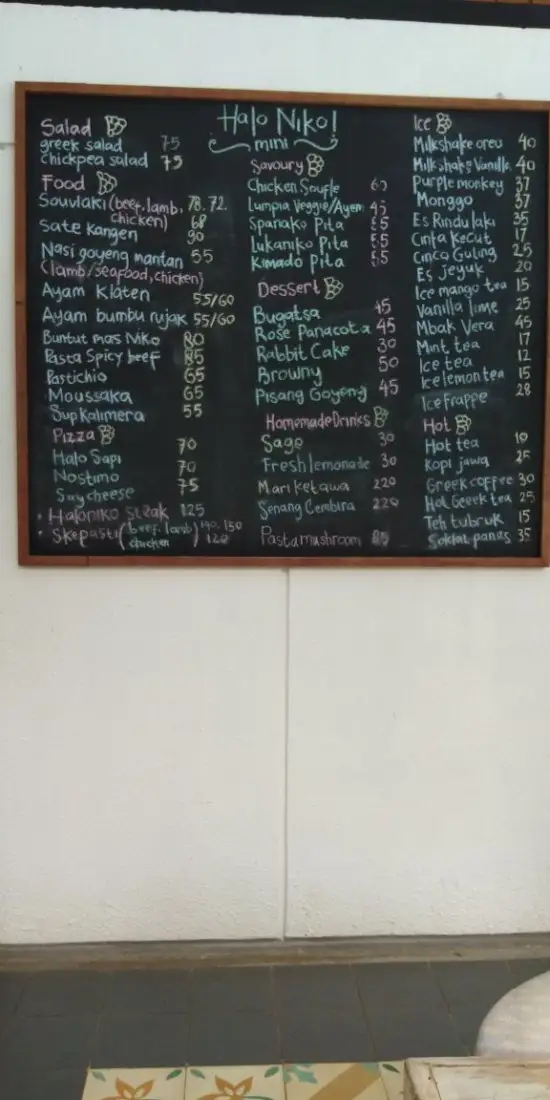 Halo Niko!
mini
Salad
greek salad 75
chickpea salad 75
Food
Souvlaki (beef, lamb, 78. 72.
chicken) 68
Sate kangen 90
Nasi goyeng mantan 55
(lamb/seafood, chicken)
Ayam Klaten 55/60
Ayam bumbu rujak 55/60
Buntut mas Niko 80
Pasta Spicy beef 85
Pastichio 65
Moussaka 65
Sup Kalimera 55
Pizza
Halo Sapi 70
Nostimo 70
Say cheese 75
• Haloniko Steak 125
• Skepasti (beef, lamb) 140, 150
chicken 120
Savoury
Chicken Soufle
Lumpia Veggie/Ayam 45
Spanako Pita 55
Lukaniko Pita 55
Kimado Pita 55
Dessert
Bugatsa 45
Rose Panacota 45
Rabbit Cake 30
Browny 50
Pisang Goyeng 45
Homemade Drinks
Sage 30
Fresh lemonade 30
Mari ketawa 220
Senang Cembira 220
Pasta mushroom 85
Ice
Milkshake oreo 40
Milkshake Vanilla 40
Purple monkey 37
Monggo 37
Es Rindu laki 35
Cinta Kecut 17
Cinco Guling 25
Es jeyuk 20
Ice mango tea 15
Vanilla lime 25
Mbak Vera 45
Mint tea 17
Ice tea 12
Ice lemon tea 15
Ice Frappe 28
Hot
Hot tea 10
Kopi jawa 25
Greek coffee 30
Hot Greek tea 25
Teh tubruk 15
Soklat panas 35